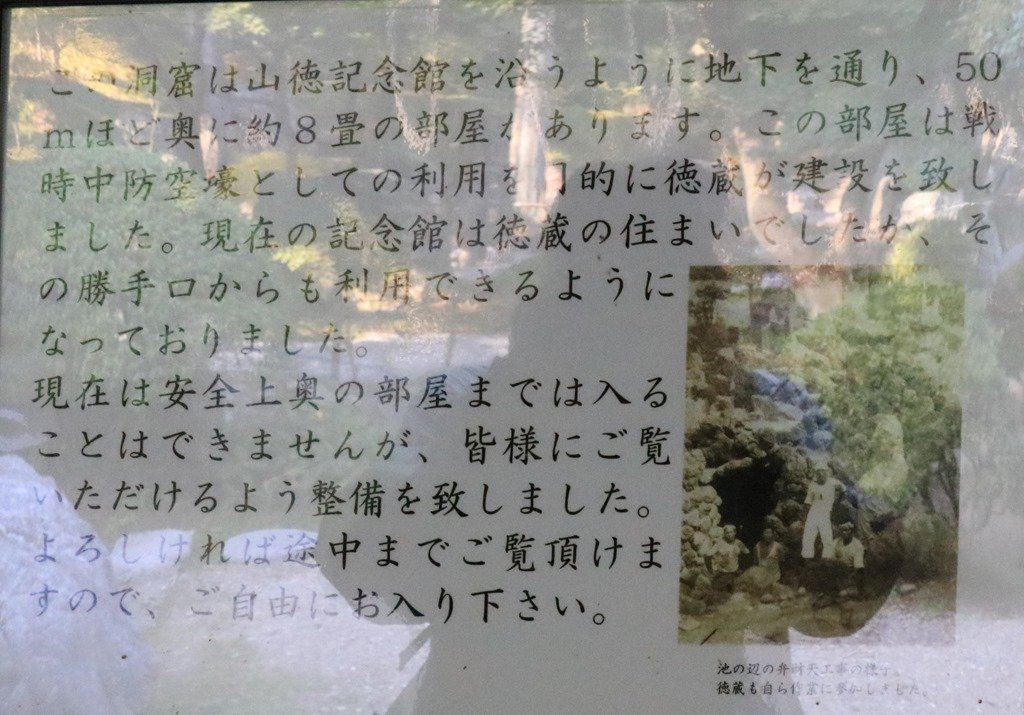 この洞窟は山徳記念館を沿うように地下を通り、50
mほど奥に約8畳の部屋があります。この部屋は戦
時中防空壕としての利用を目的に徳蔵が建設を致し
ました。現在の記念館は徳蔵の住まいでしたが、そ
の勝手口からも利用できるように
なっておりました。
現在は安全上奥の部屋までは入る
ことはできませんが、皆様にご覧
いただけるよう整備を致しました。
よろしければ途中までご覧頂けま
すので、ご自由にお入り下さい。
池の辺の弁財天工事の様子。
徳蔵も自ら作業に参加しました。